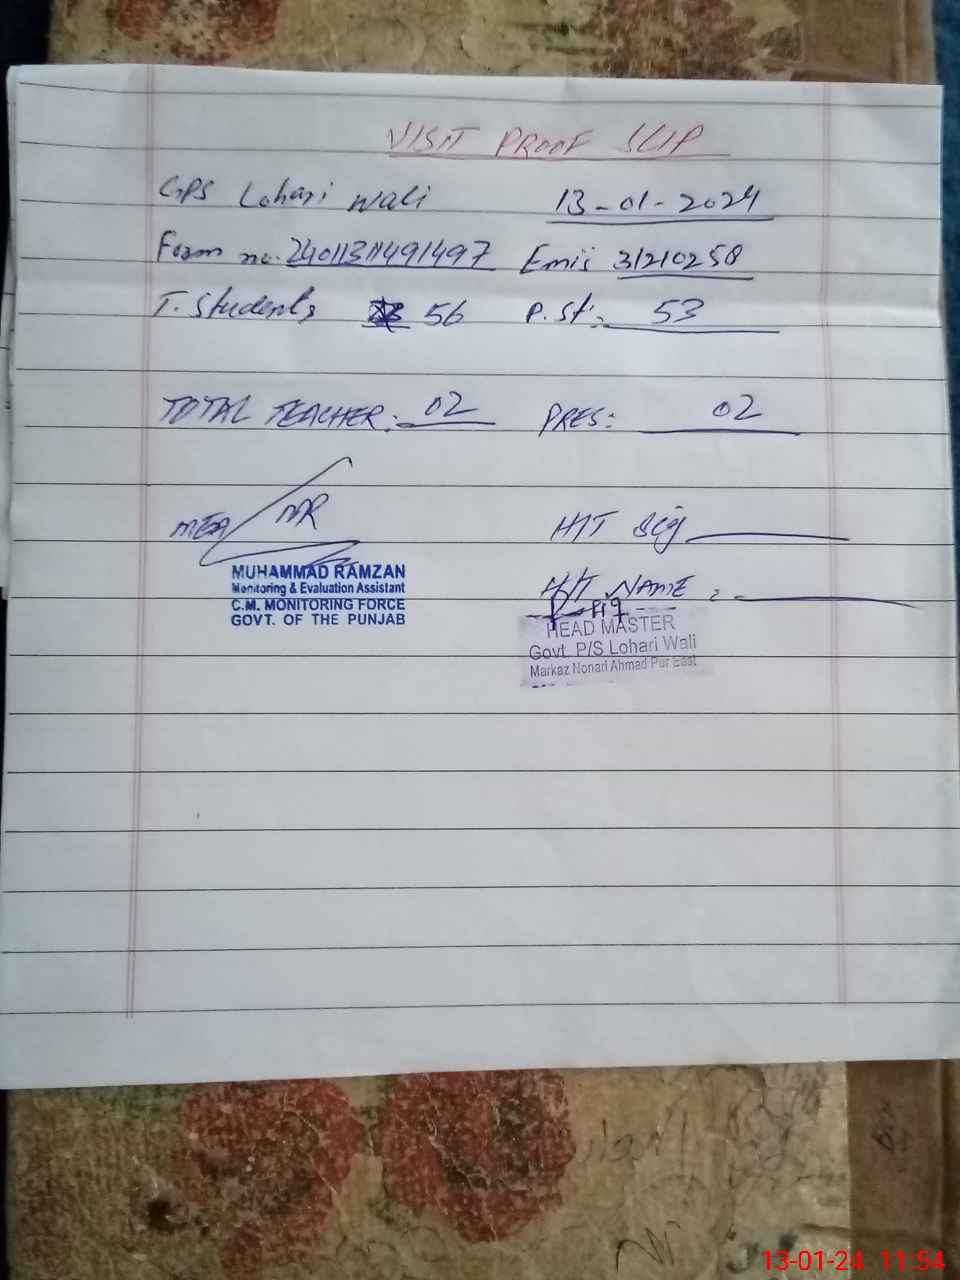 VISIT PROOF SLIP
GPS Lohari Wali 13-01-2024
Form no. 24011311491497 Emis 31210258
T. Students 56 P. St: 53
TOTAL TEACHER: 02 PRES: 02
MEA MR H/T Sig
MUHAMMAD RAMZAN
Monitoring & Evaluation Assistant
C.M. MONITORING FORCE
GOVT. OF THE PUNJAB
H/T NAME :
HEAD MASTER
Govt. P/S Lohari Wali
Markaz Nonari Ahmad Pur East
13-01-24 11:54